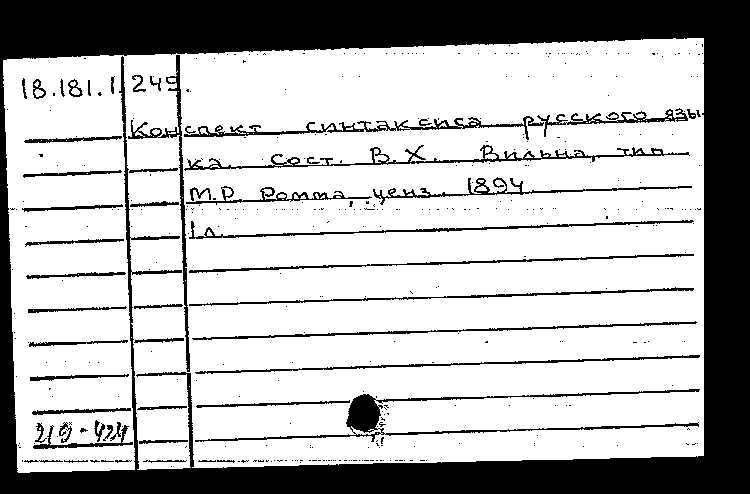 18.181.1.249.
Конспект синтаксиса русского язы-
ка. Сост. В.Х. Вильна, тип.
М.Р. Ромма, ценз. 1894.
1 л.
210-424